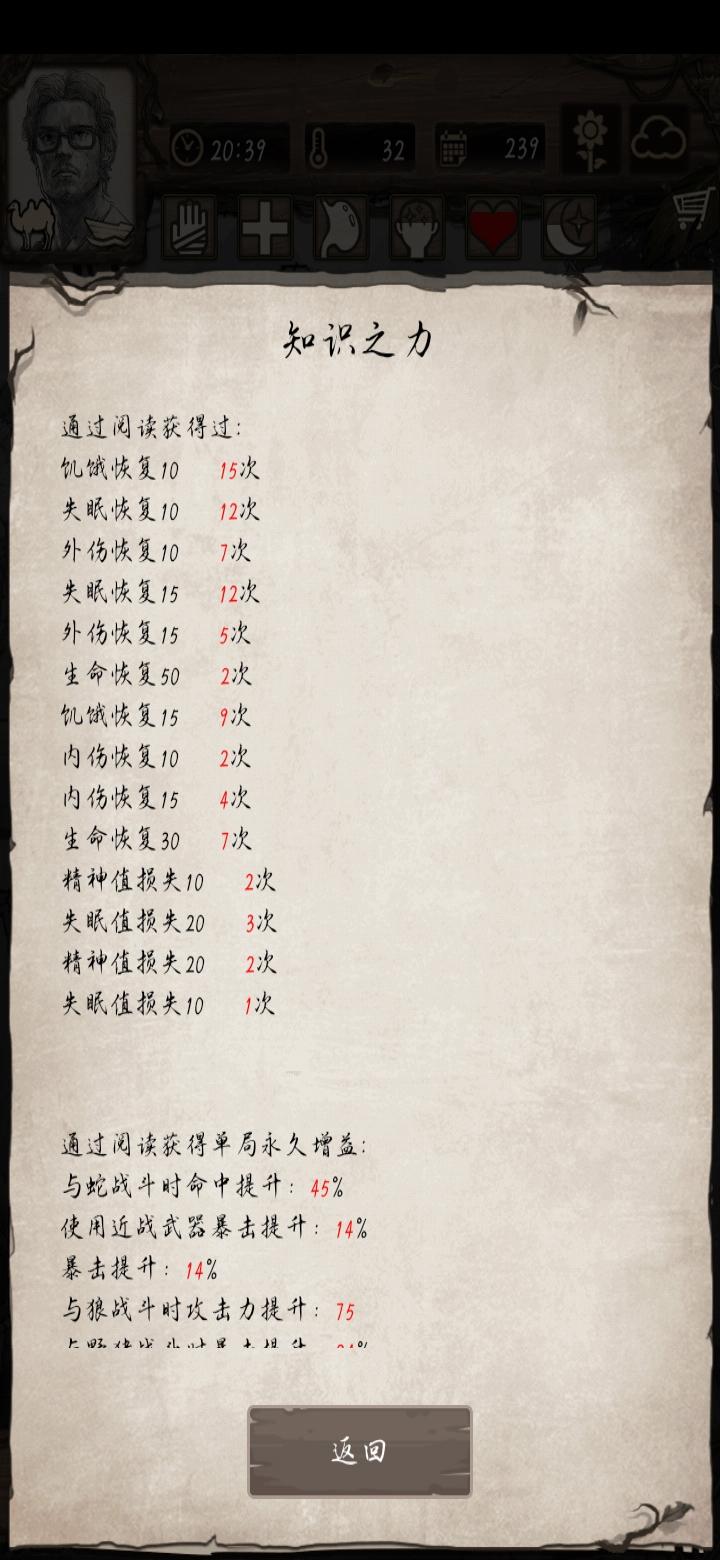 20:39
32
239
知识之力
通过阅读获得过:
饥饿恢复10 15次
失眠恢复10 12次
外伤恢复10 7次
失眠恢复15 12次
外伤恢复15 5次
生命恢复50 2次
饥饿恢复15 9次
内伤恢复10 2次
内伤恢复15 4次
生命恢复30 7次
精神值损失10 2次
失眠值损失20 3次
精神值损失20 2次
失眠值损失10 1次
通过阅读获得单局永久增益:
与蛇战斗时命中提升: 45%
使用近战武器暴击提升: 14%
暴击提升: 14%
与狼战斗时攻击力提升: 75
返回